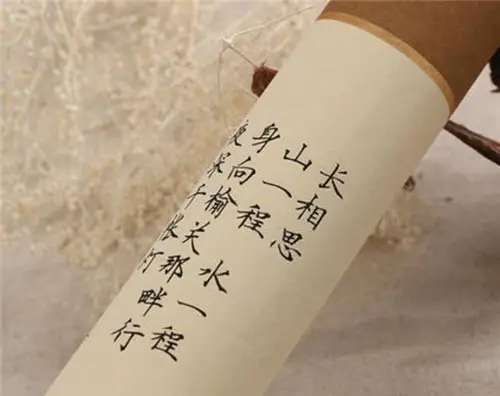 长相思
山一程 水一程
身向榆关那畔行
夜深千帐灯